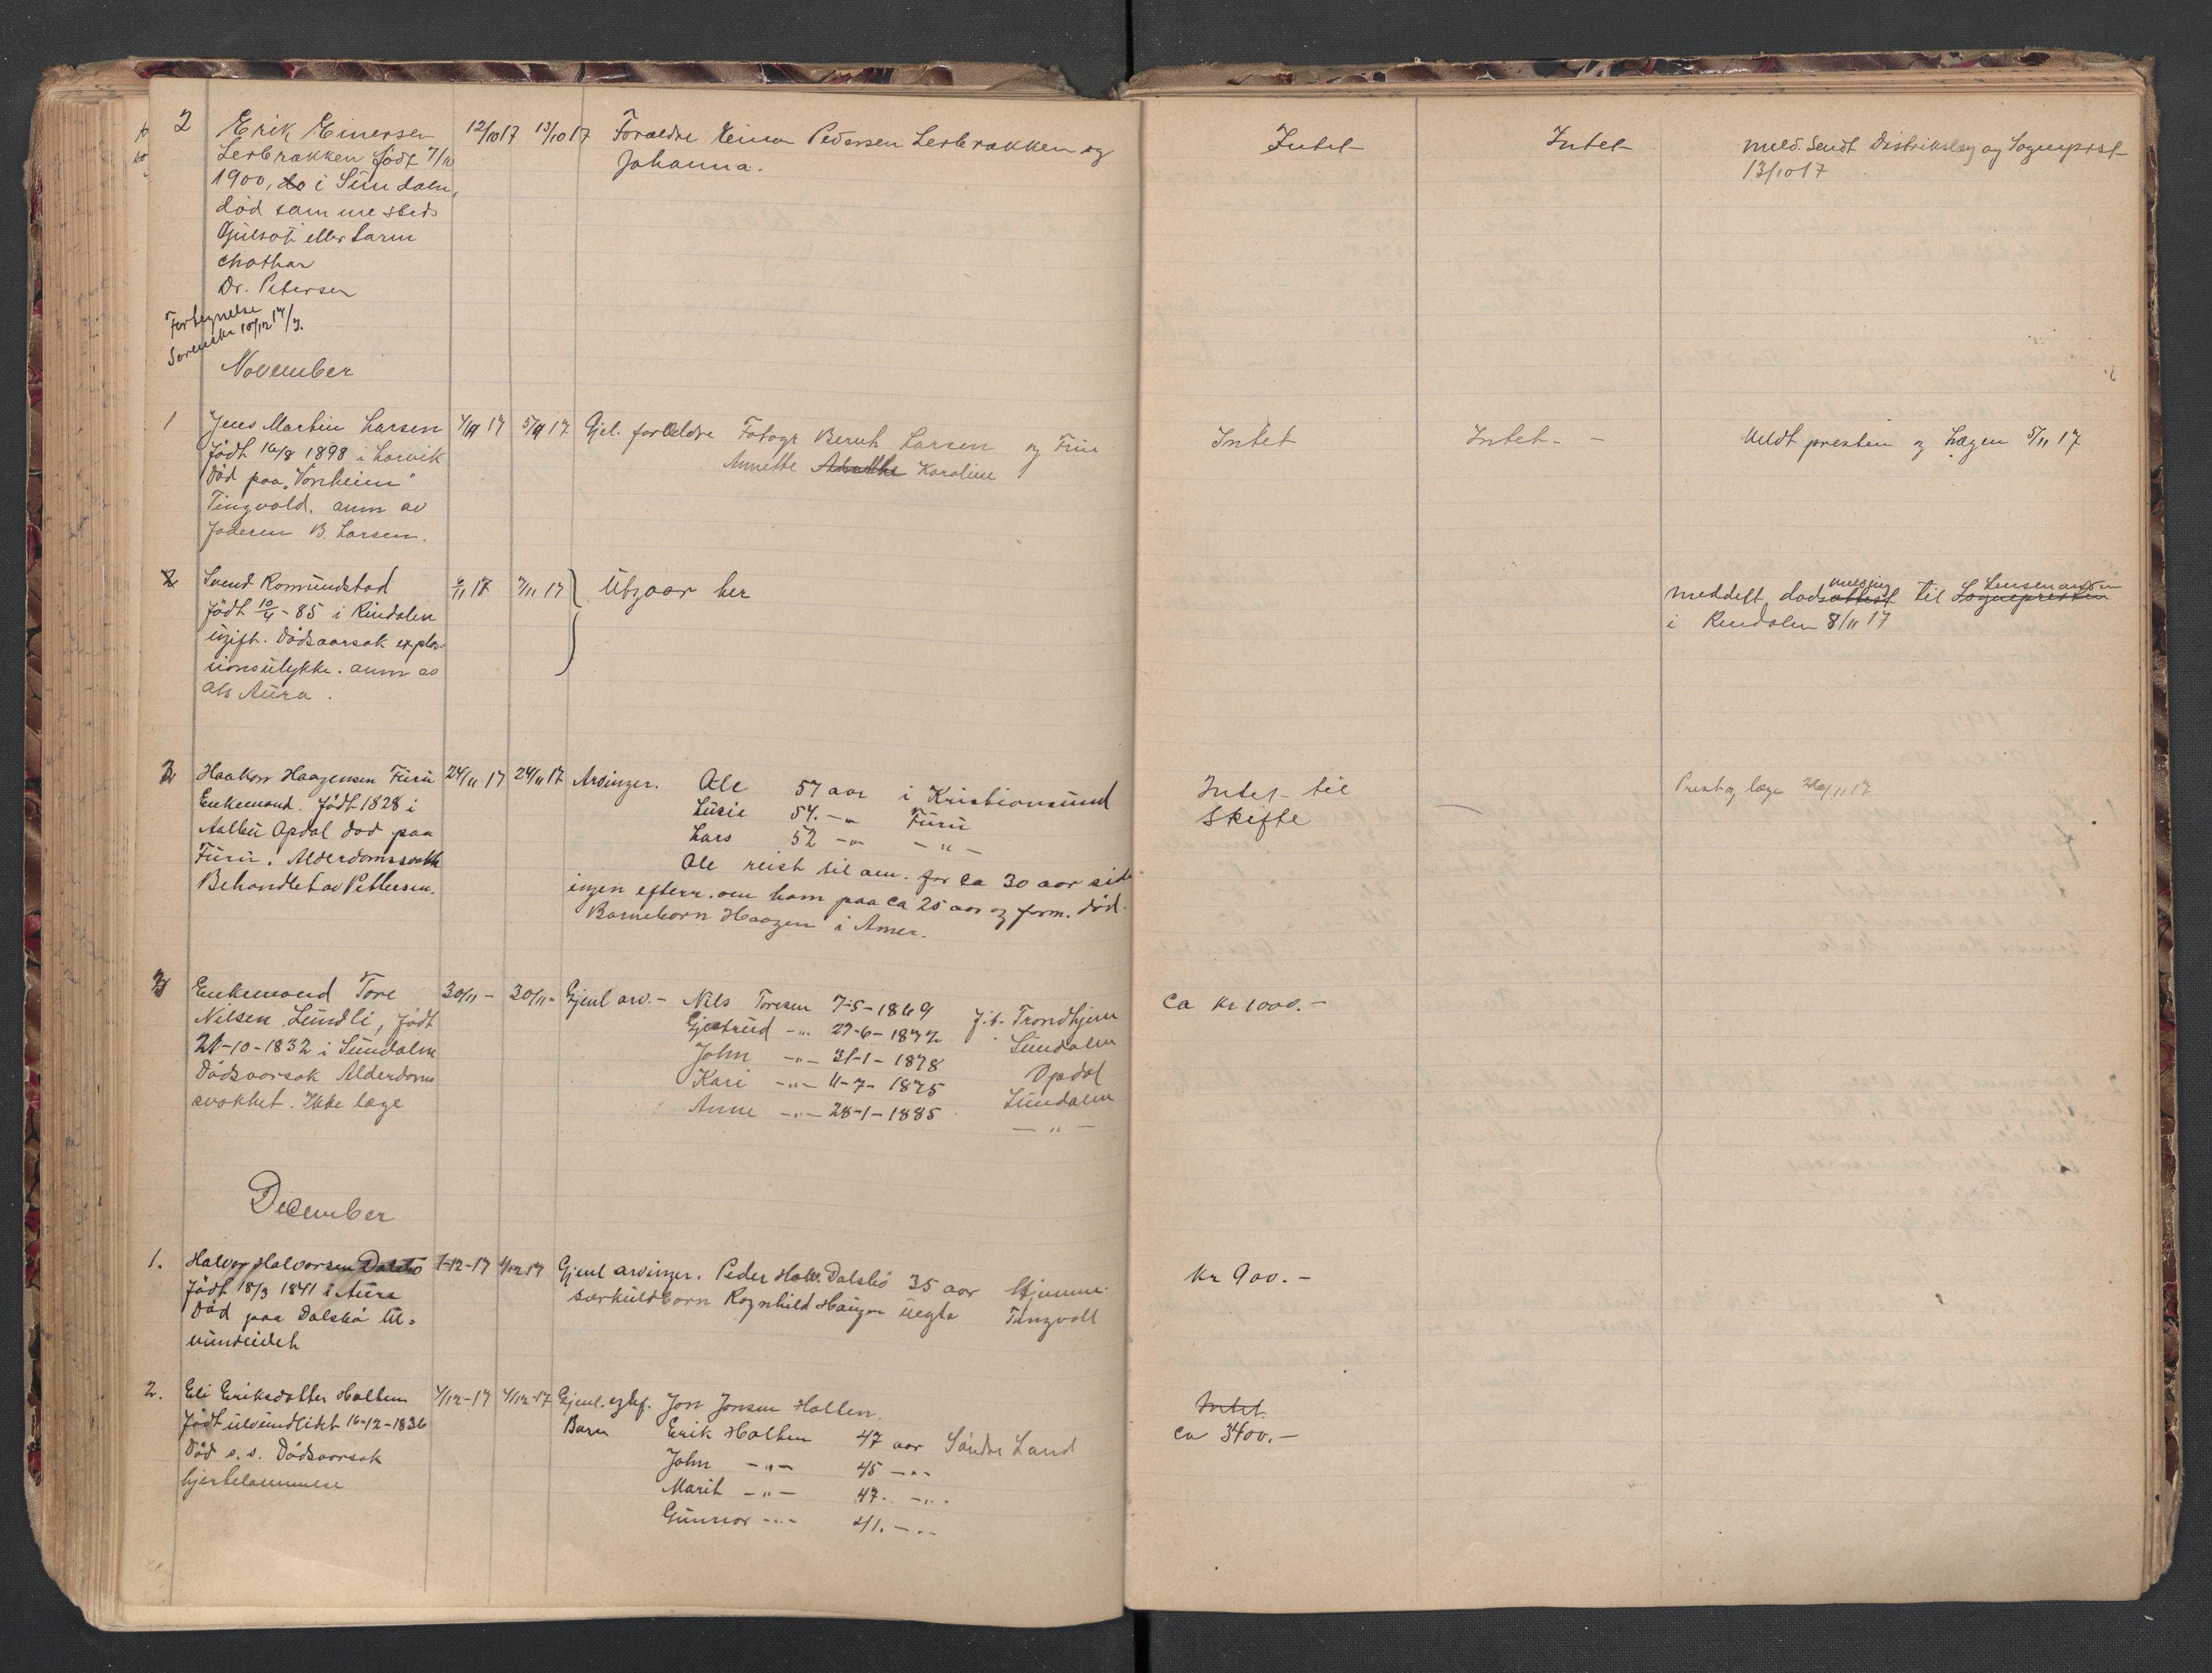 2 Erik Einersen 12/10 17 13/10 17 Foraeldre Einar Pedersen Lerbrækken og Intet Intet meld. sendt Distriktslæg og Sogneprst
Lerbrækken født 7/10 Johanna. 13/10 17
1900, do i Sundalen,
død samme steds
Gulsot eller tarm
chathar
Dr. Petersen
Fortegnelse
Sorenskr 10/12 17
November
1 Jens Martin Larsen 4/11 17 5/11 17 Gjel. forældre Fotogr Bernh Larsen og Frue Intet Intet - - Meldt presten og Lægen 5/11 17
født 16/8 1898 i Larvik Annette Karoline
Død paa "Vonheim"
Tingvold. anm av
faderen B. Larsen.
2 Svend Romundstad 6/11 17 7/11 17 Utgaar her meddelt dødsmelding til Lensmanden
født 10/4 - 85 i Rindalen i Rindalen 8/11 17
ugift. Dødsaarsak explo-
sionsulykke. anm av
A/s Aura.
2 Haakon Haagensen Furu 24/11 17 24/11 17 Arvinger. Ole 57 aar i Kristiansund Intet til Prest og læge 26/11 17
Enkemand. født 1828 i Lusie 54. -"- Furu skifte
Aalbu Opdal død paa Lars 52 -"- - " -
Furu. Alderdomssvakh Ole reist til am. for ca 30 aar side
Behandlet av Pettersen. ingen efterr. om ham paa ca 25 aar og form. død.
Barnebarn Haagen i Amer.
3 Enkemand Tore 30/11 - 30/11 - Gjenl arv. - Nils Toresen 7-5-1869 f.t. Trondhjem ca kr 1000. -
Nilsen Lundli, født Gjertrud -"- 27-6-1872 Sundalen
21-10-1832 i Sundalen John -"- 31-1-1878 Opdal
Dødsaarsak Alderdoms Kari -"- 11-7-1875 Sundalen
svakhet. Ikke læge Anne -"- 28-1-1885 - " -
December
1. Halvor Halvorsen Dalsbø 1-12-17 4/12 17 Gjenl arvinger. Peder Halv. Dalsbø 35 aar Hjemme. kr 900. -
født 18/3 1841 i Aure særkuldbarn Ragnhild Haugen uegte Tingvoll
Død paa Dalsbø Ul-
vundeidet
2. Eli Eriksdatter Holten 4/12-17 4/12-17 Gjenl. egtef. Jon Jonsen Holten. Intet.
født ulvundeidet 16-12-1836 Barn Erik Holten 47 aar Søndre Land ca 3400. -
Død s. s. Dødsaarsak John -"- 45 -"-
hjertelammelse Marit -"- 47. -"-
Gunnor -"- 41. -"-